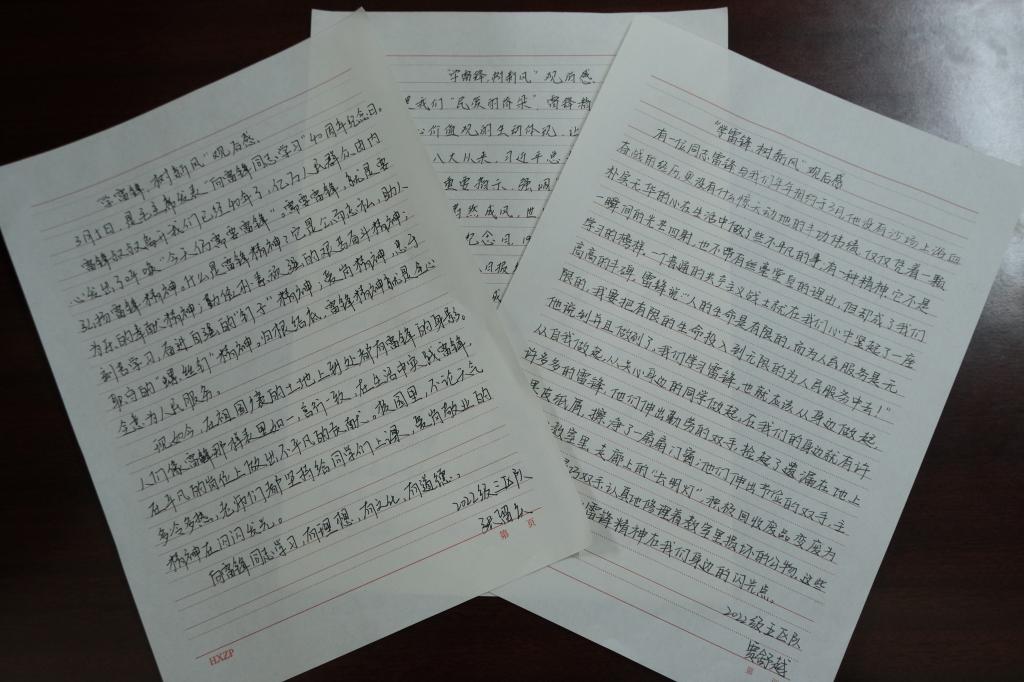 “学雷锋，树新风”观后感
3月5日，是毛主席发表“向雷锋同志学习”40周年纪念日。
雷锋叔叔离开我们已经40年了，亿万人民群众团内
心发出了呼唤“今天仍需要雷锋”。需要雷锋，就是要
弘扬雷锋精神。什么是雷锋精神？它是公而忘私，助人
为乐的奉献精神；勤俭朴素，顽强的艰苦奋斗精神；
刻苦学习，奋进自强的“钉子”精神；爱岗精神，忠于
职守的“螺丝钉”精神，归根结底，雷锋精神就是全心
全意为人民服务。
现如今，在祖国的土地上到处都有雷锋的身影。
人们像雷锋那样表里如一，言行一致，在生活中实践雷锋，
在平凡的岗位上做出不平凡的贡献。校园里，不论天气
多冷多热，老师们都坚持给同学们上课，爱岗敬业的
精神在闪闪发光。
向雷锋同志学习，有理想，有文化，有道德。
2022级三区队
第 页
HXZP
“学雷锋，树新风”观后感
是我们“民族的脊梁”，雷锋精
心价值观的生动体现，让
八大以来，习近平总
重要指示，强调
蔚然成风，世
纪念日，
日报
“学雷锋，树新风”观后感
有一位同志雷锋自我们年年相约于3月，他没有沙场上浴血
奋战的经历，更没有什么惊天动地的丰功伟绩，仅仅凭着一颗
朴实无华的心在生活中做了些不平凡的事，有一种精神，它不是
一瞬间的光芒四射，也不需有丝毫堂皇的理由，但却成了我们
学习的榜样，一个普通的共产主义战士就在我们心中竖起了一座
高高的丰碑，雷锋说：“人的生命是有限的，而为人民服务是无
限的，我要把有限的生命投入到无限的为人民服务中去！”
他说到并且做到了，我们学习雷锋，也就应该从身边做起，
从自我做起，从关心身边的同学做起，在我们的身边就有许
许多多的雷锋，他们伸出勤劳的双手，捡起了遗漏在地上
果皮纸屑，擦净了一扇扇门窗；他们伸出节俭的双手，主
教室里、走廊上的“长明灯”，积极回收废品变废为
巧双手，认真地修理着教室里损坏的公物，这些
雷锋精神在我们身边的闪光点。
2022级五区队
贾舒越
第